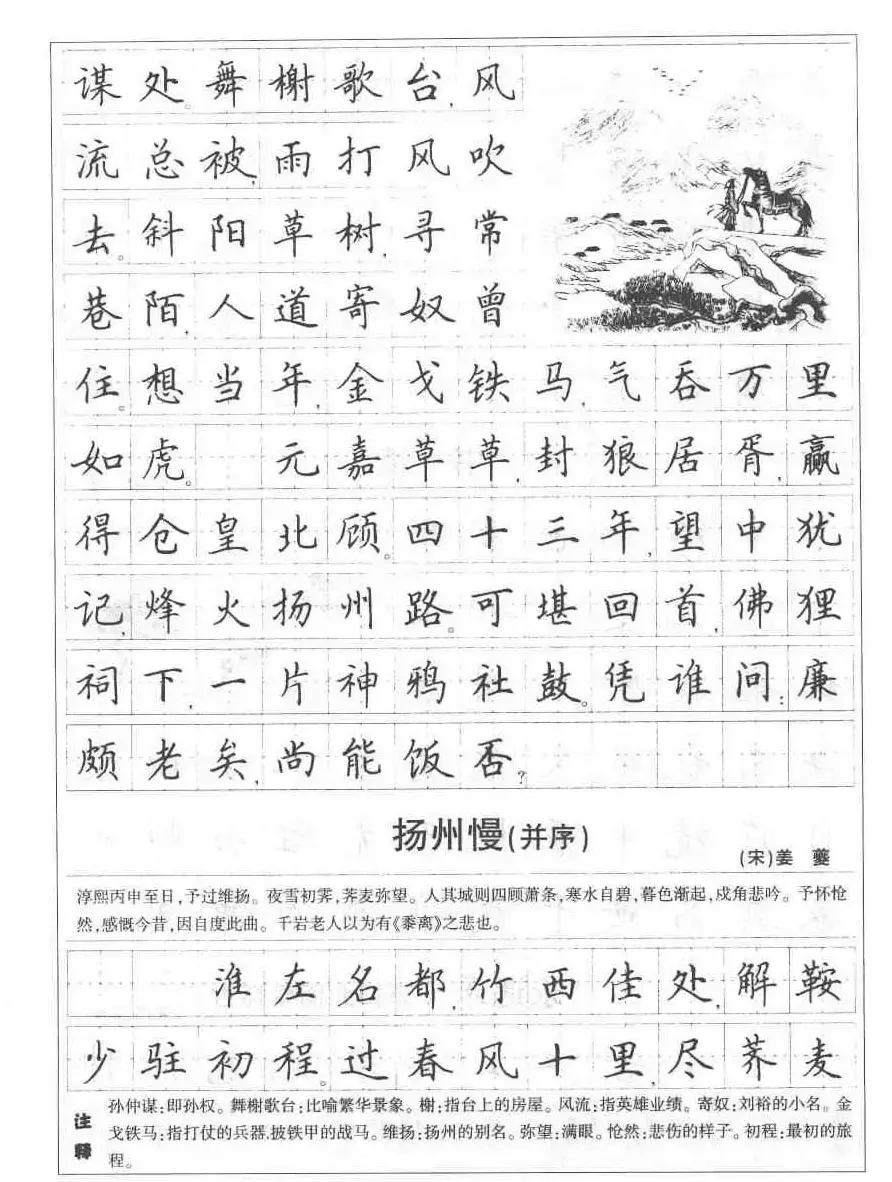 谋处。舞榭歌台,风
流总被,雨打风吹
去。斜阳草树,寻常
巷陌,人道寄奴曾
住。想当年,金戈铁马,气吞万里
如虎。 元嘉草草,封狼居胥,赢
得仓皇北顾。四十三年,望中犹
记,烽火扬州路。可堪回首,佛狸
祠下,一片神鸦社鼓。凭谁问:廉
颇老矣,尚能饭否?
扬州慢(并序)
(宋)姜 夔
淳熙丙申至日,予过维扬。夜雪初霁,荠麦弥望。人其城则四顾萧条,寒水自碧,暮色渐起,戍角悲吟。予怀怆
然,感慨今昔,因自度此曲。千岩老人以为有《黍离》之悲也。
淮左名都,竹西佳处,解鞍
少驻初程。过春风十里,尽荞麦
注释
孙仲谋:即孙权。舞榭歌台:比喻繁华景象。榭:指台上的房屋。风流:指英雄业绩。寄奴:刘裕的小名。金
戈铁马:指打仗的兵器.披铁甲的战马。维扬:扬州的别名。弥望:满眼。怆然:悲伤的样子。初程:最初的旅
程。